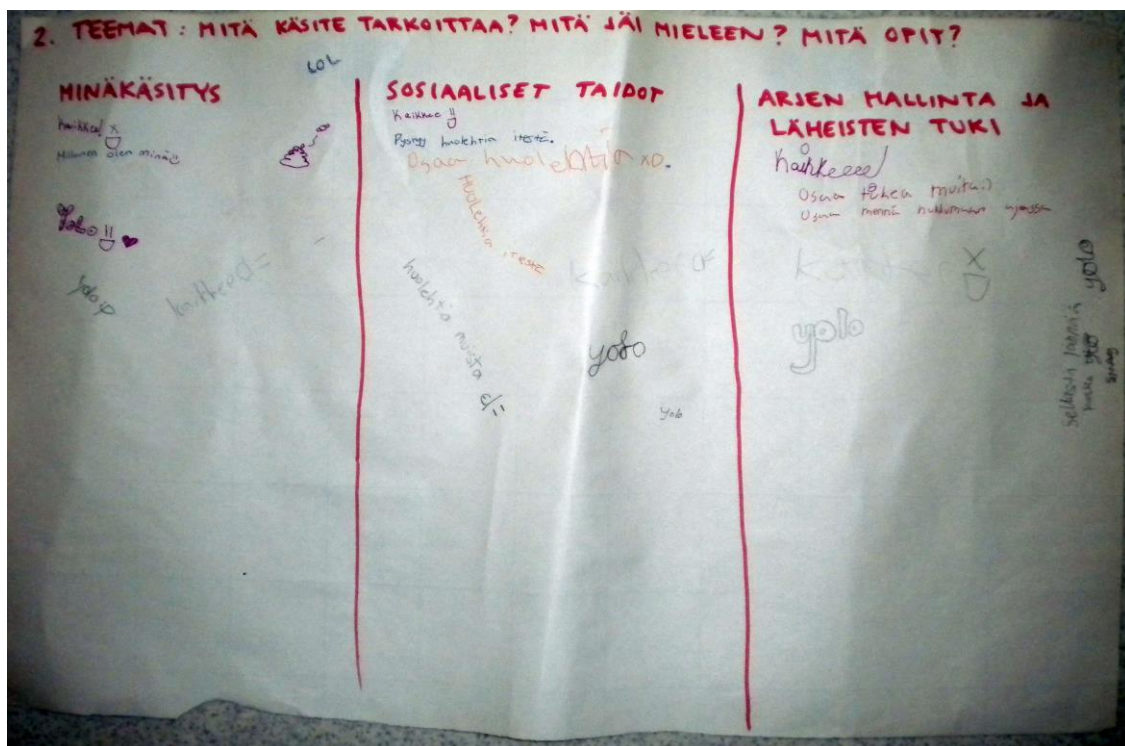 2. TEEMAT: MITÄ KÄSITE TARKOITTAA? MITÄ JÄI MIELEEN? MITÄ OPIT?
LOL
MINÄKÄSITYS
kaikkea!
Millanen olen minä
Yolo
yolo
kaikkea d=
SOSIAALISET TAIDOT
Kaikkee
Pysyyy huolehtia itestä.
Osaan huolehtia xD.
Huolehtia itestä
huolehtia muista d=
yolo
yolo
ARJEN HALLINTA JA
LÄHEISTEN TUKI
kaikkeee!
Osaa tukea muita:)
Osaa mennä nukkumaan ajoissa
yolo
yolo